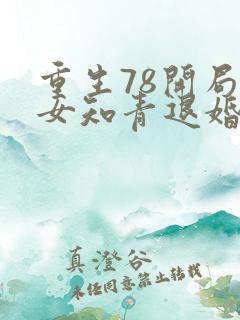 重生78开局
女知青退婚
真澄谷
未经同意禁止转载